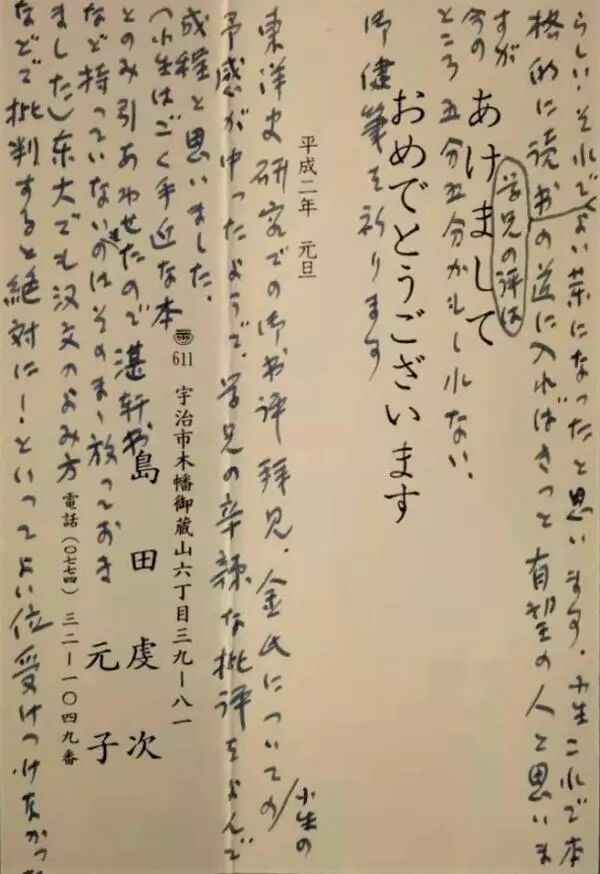 らしい．それでよい薬になったと思います．小生これで本
学兄の評は
格的に読书の道に入ればきっと有望の人と思いま
すが
今の
ところ五分五分かもしれない．
あけまして
おめでとうございます
御健筆を祈ります
平成二年　元旦
東洋史研究での御书评拝見．金氏についての/小生の
予感が中ったようで、学兄の辛辣な批评をよんで
成程と思いました．
(小生はごく手近な本
とのみ引あわせたので湛軒书
など持っていないのはそのまゝ放っておき
ました)东大でも汉文のよみ方
などで批判すると絶対に！といってよい位受けつけなかった
611 宇治市木幡御蔵山六丁目三九ー八一
島田虔次
元子
電話（〇七七四）三二ー一〇四九番